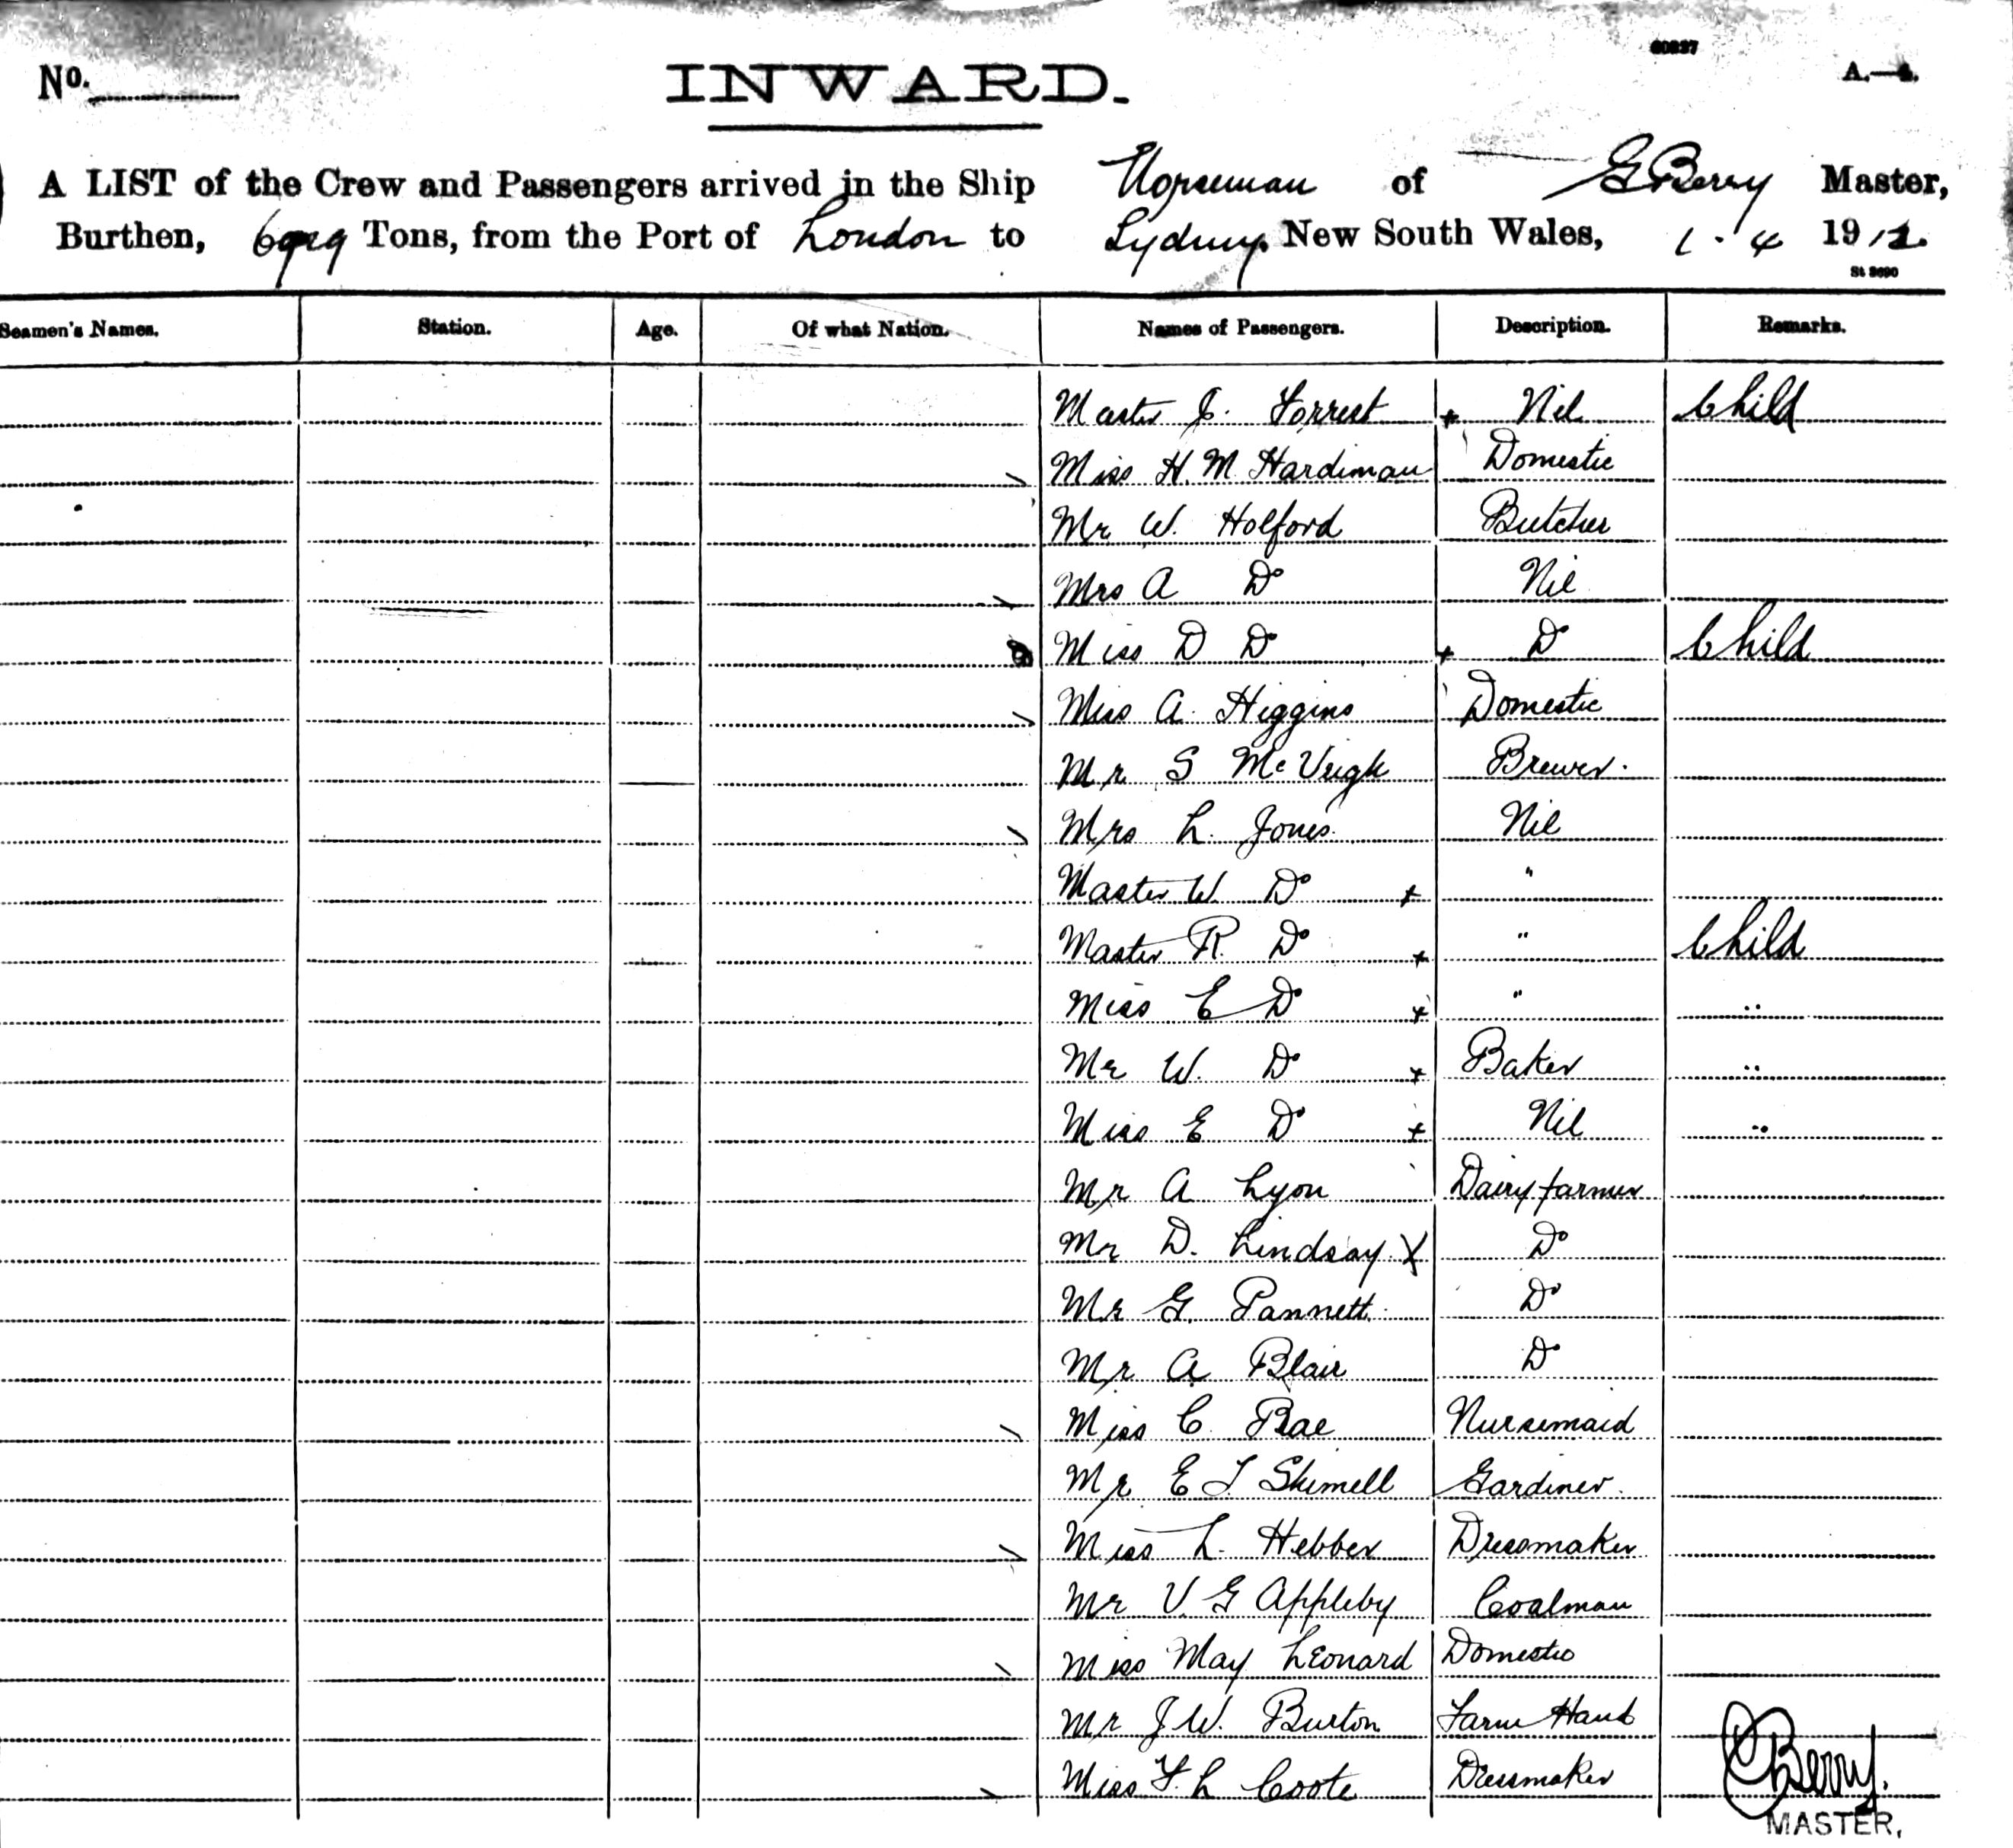 No.
INWARD.
60237
A.—4.
A LIST of the Crew and Passengers arrived in the Ship Norseman of G Berry Master,
Burthen, Tons, from the Port of London to Sydney, New South Wales, 1. 4 1912.
St 3690
Seamen's Names. Station. Age. Of what Nation. Names of Passengers. Description. Remarks.
Master J. Forrest + Nil Child
Miss H. M. Hardiman Domestic
Mr W. Holford Butcher
Mrs A Do Nil
Miss D Do + Do Child
Miss A. Higgins Domestic
Mr S McVeigh Brewer.
Mrs L. Jones. Nil
Master W. Do + "
Master R. Do + " Child
Miss E Do + " "
Mr W. Do + Baker "
Miss E Do + Nil "
Mr A Lyon Dairy farmer
Mr D. Lindsay X Do
Mr G. Pannett. Do
Mr A Blair Do
Miss C. Rae Nursemaid
Mr E T Skimell Gardiner.
Miss L. Hebber Dressmaker
Mr V. G Appleby Coalman
Miss May Leonard Domestic
Mr J. W. Burton Farm Hand
Miss F. L Coote Dressmaker
G Berry.
MASTER,